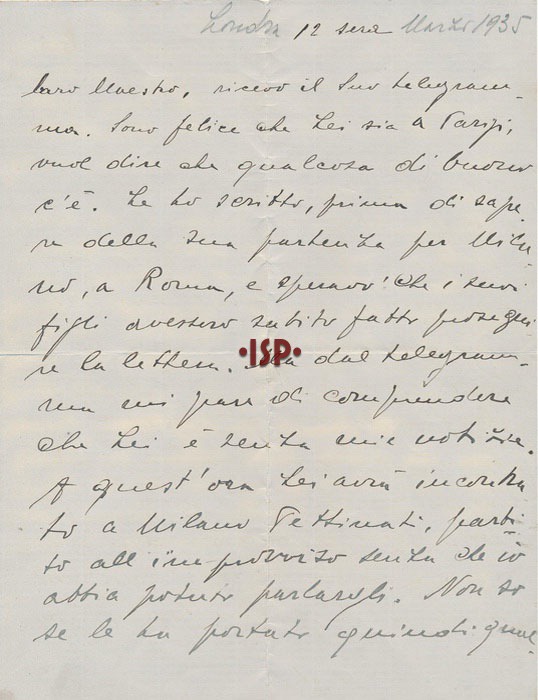 Londra 12 sera Marzo 1935
Caro Maestro, ricevo il Suo telegram-
ma. Sono felice che Lei sia a Parigi,
vuol dire che qualcosa di buono
c'è. Le ho scritto, prima di sape-
re della sua partenza per Mila-
no, a Roma, e speravo che i suoi
figli avessero subito fatto prosegui
re la lettera. Ma dal telegram-
ma mi pare di comprendere
che Lei è senza mie notizie.
A quest'ora Lei avrà incontra
to a Milano Pettinati, parti-
to all'improvviso senza che io
abbia potuto parlargli. Non so
se le ha portato quindi qual-
•ISP•